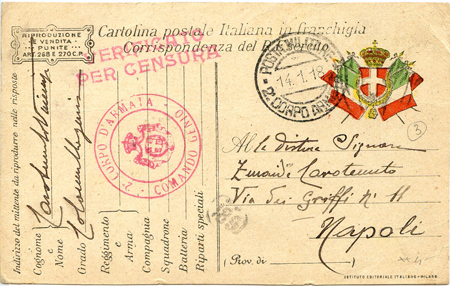 RIPRODUZIONE
E VENDITA
PUNITE
ART. 268 E 270 C.P.
Cartolina postale Italiana in franchigia
Corrispondenza del R. Esercito
VERIFICATO
PER CENSURA
POSTA MILITARE
14.1.18
2° CORPO ARM
2° CORPO D'ARMATA
COMANDO GENIO
3
Indirizzo del mittente da riprodurre nelle risposte
Cognome
e
Nome
Grado
Reggimento
e
Arma
Compagnia
Squadrone
Batteria
Riparti speciali
Signora
Carotenuto
Via dei Griffi N. 11
Napoli
(Prov. di )
ISTITUTO EDITORIALE ITALIANO - MILANO